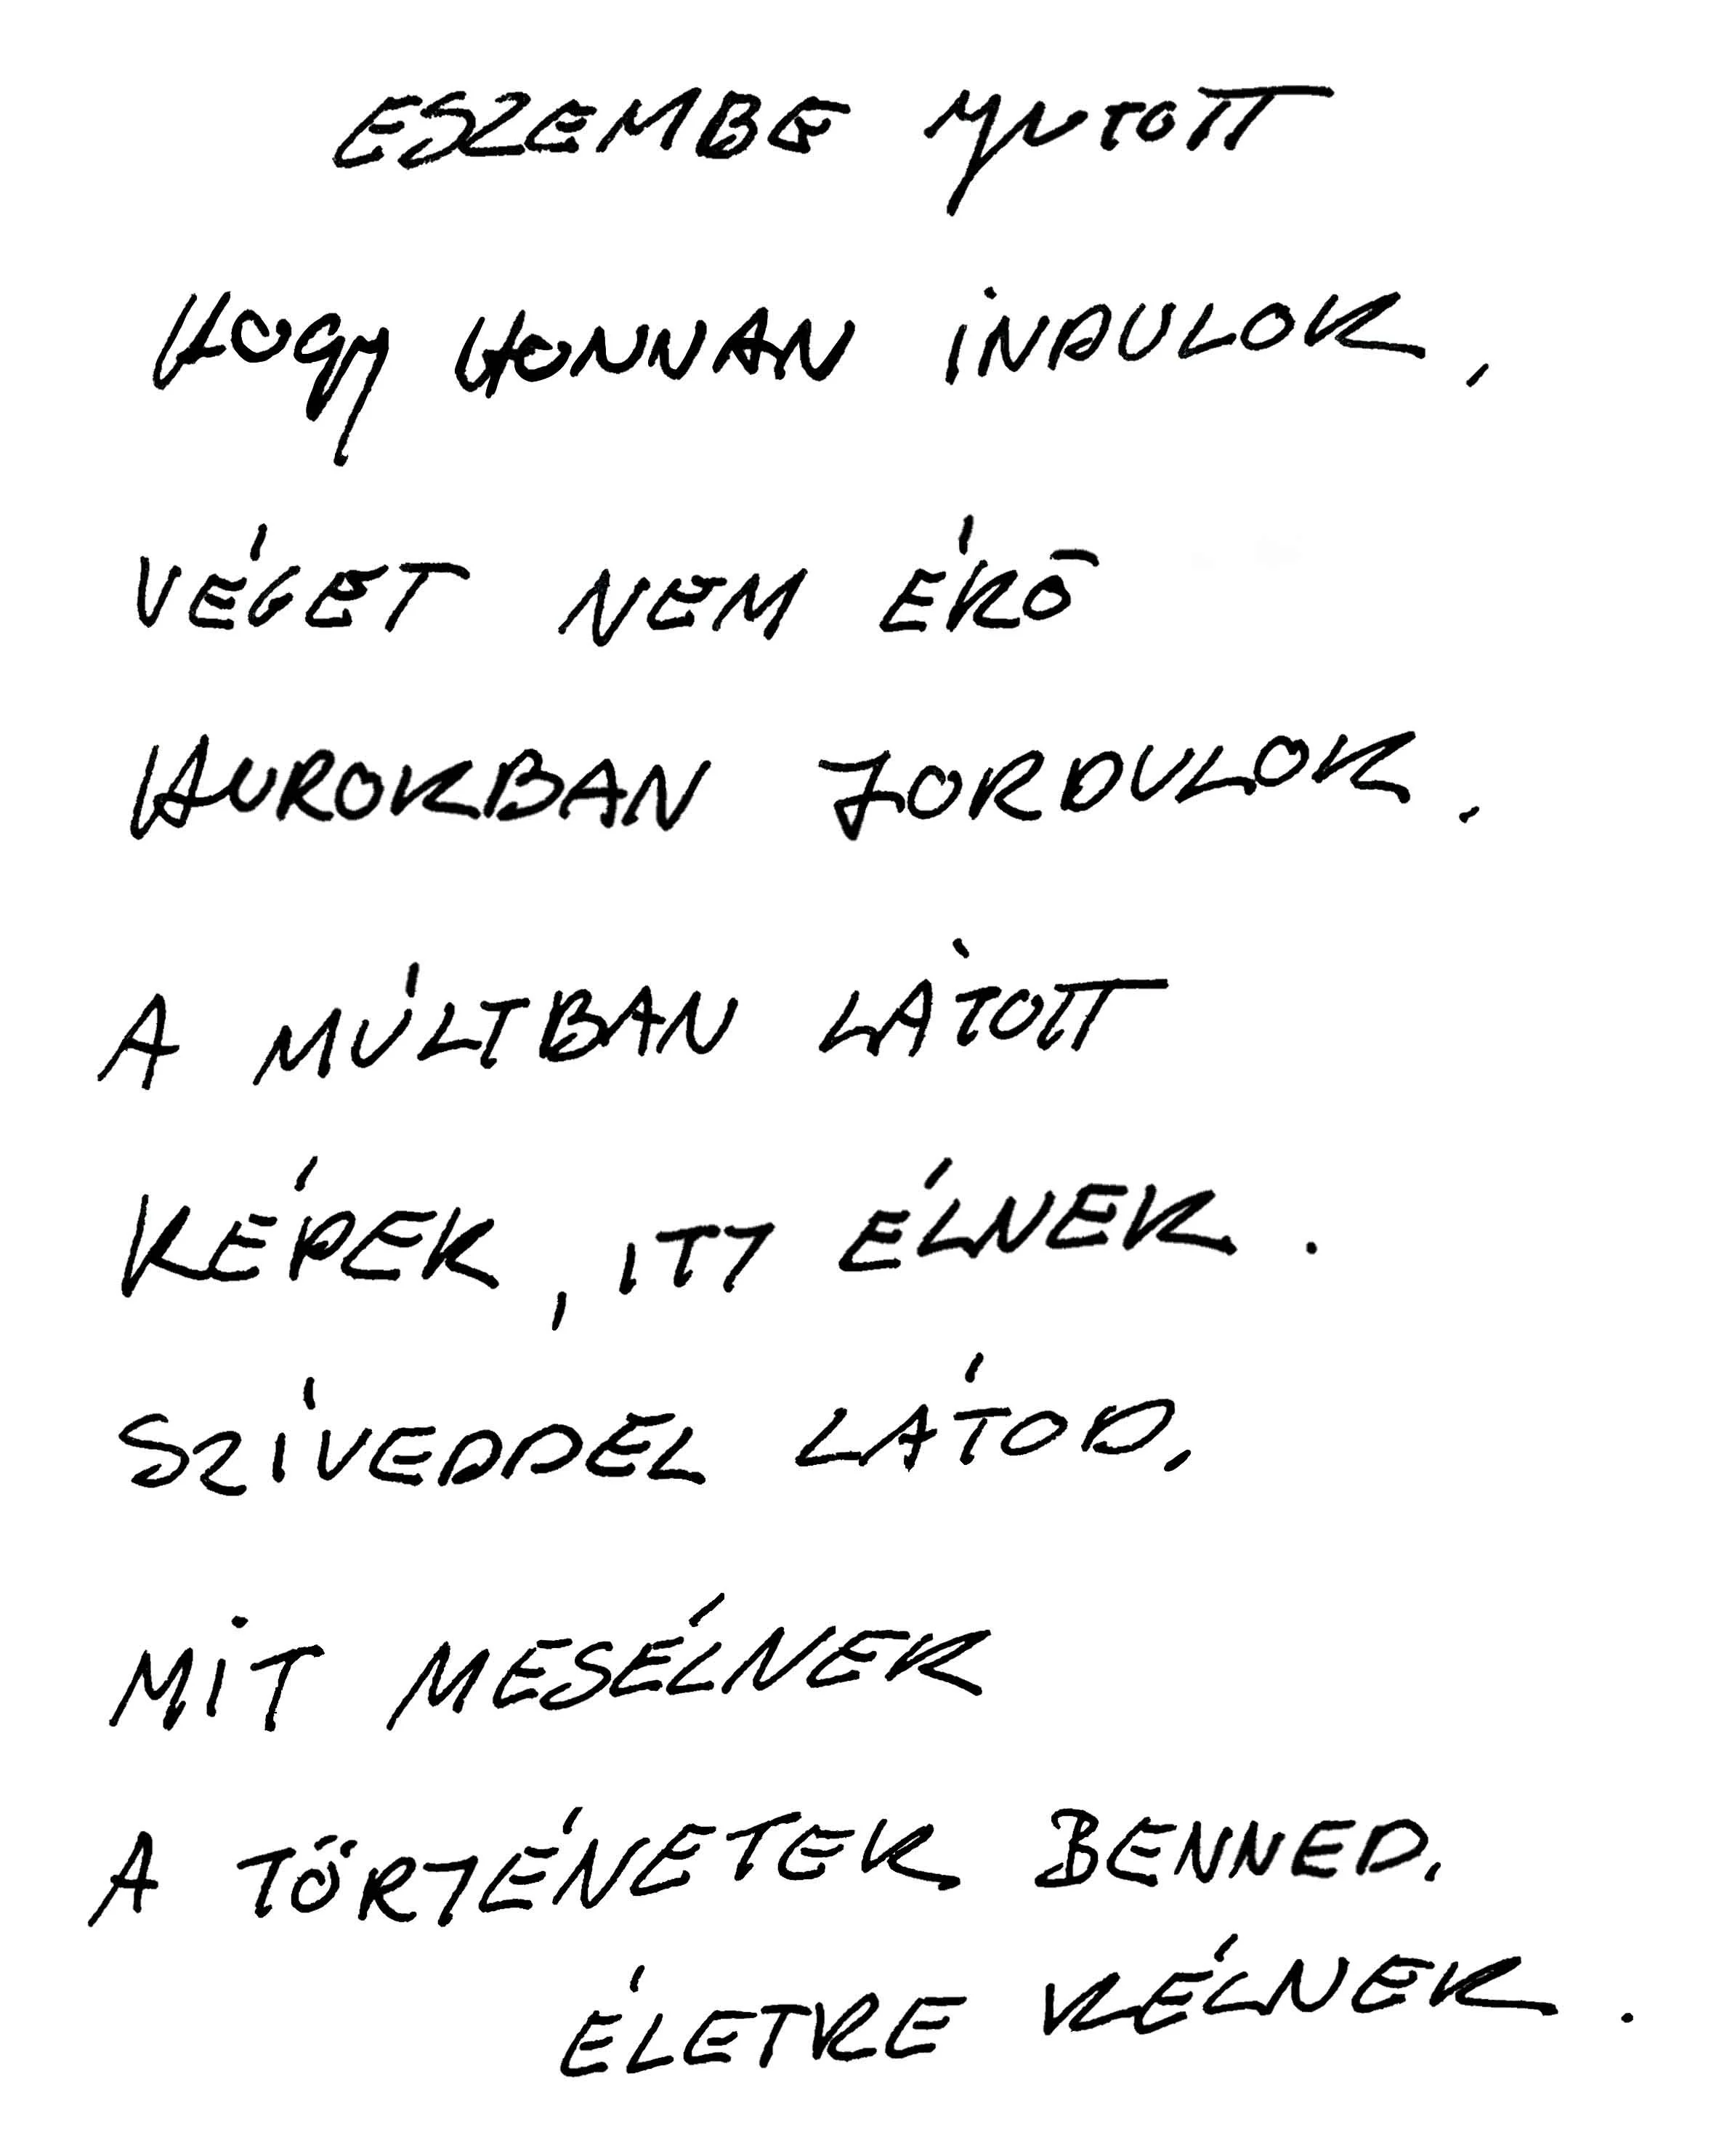 ESZEMBE JUTOTT
HOGY HONNAN INDULOK,
VÉGET NEM ÉRŐ
HUROKBAN FORDULOK.
A MÚLTBAN LÁTOTT
KÉPEK, ITT ÉLNEK.
SZÍVEDDEL LÁTOD,
MIT MESÉLNEK
A TÖRTÉNETEK BENNED,
ÉLETRE KÉLNEK.